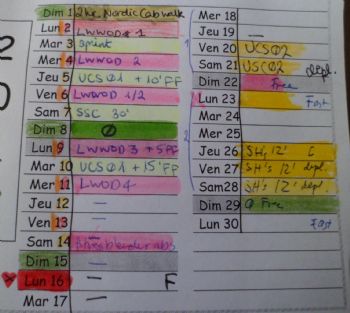 Dim 1 2 hr Nordic Cat walk
Lun 2 LWWOD 1
Mar 3 Sprint
Mer 4 LWWOD 2
Jeu 5 UCSØ1 + 10' FF
Ven 6 LWWOD 1/2
Sam 7 SSC 30'
Dim 8 Ø
Lun 9 LWWOD 3 + 5FF
Mar 10 UCSØ1 + 15' FF
Mer 11 LWOD4
Jeu 12 —
Ven 13 —
Sam 14 abs
Dim 15 —
Lun 16 — F
Mar 17 —
Mer 18
Jeu 19 —
Ven 20 UCSØ2
Sam 21 USCØ2 depl.
Dim 22 Free
Lun 23 Fast
Mar 24
Mer 25
Jeu 26 SH's 12' C
Ven 27 SH's 12' depl.
Sam 28 SH's 12' depl.
Dim 29 Free
Lun 30 Fast
1
2